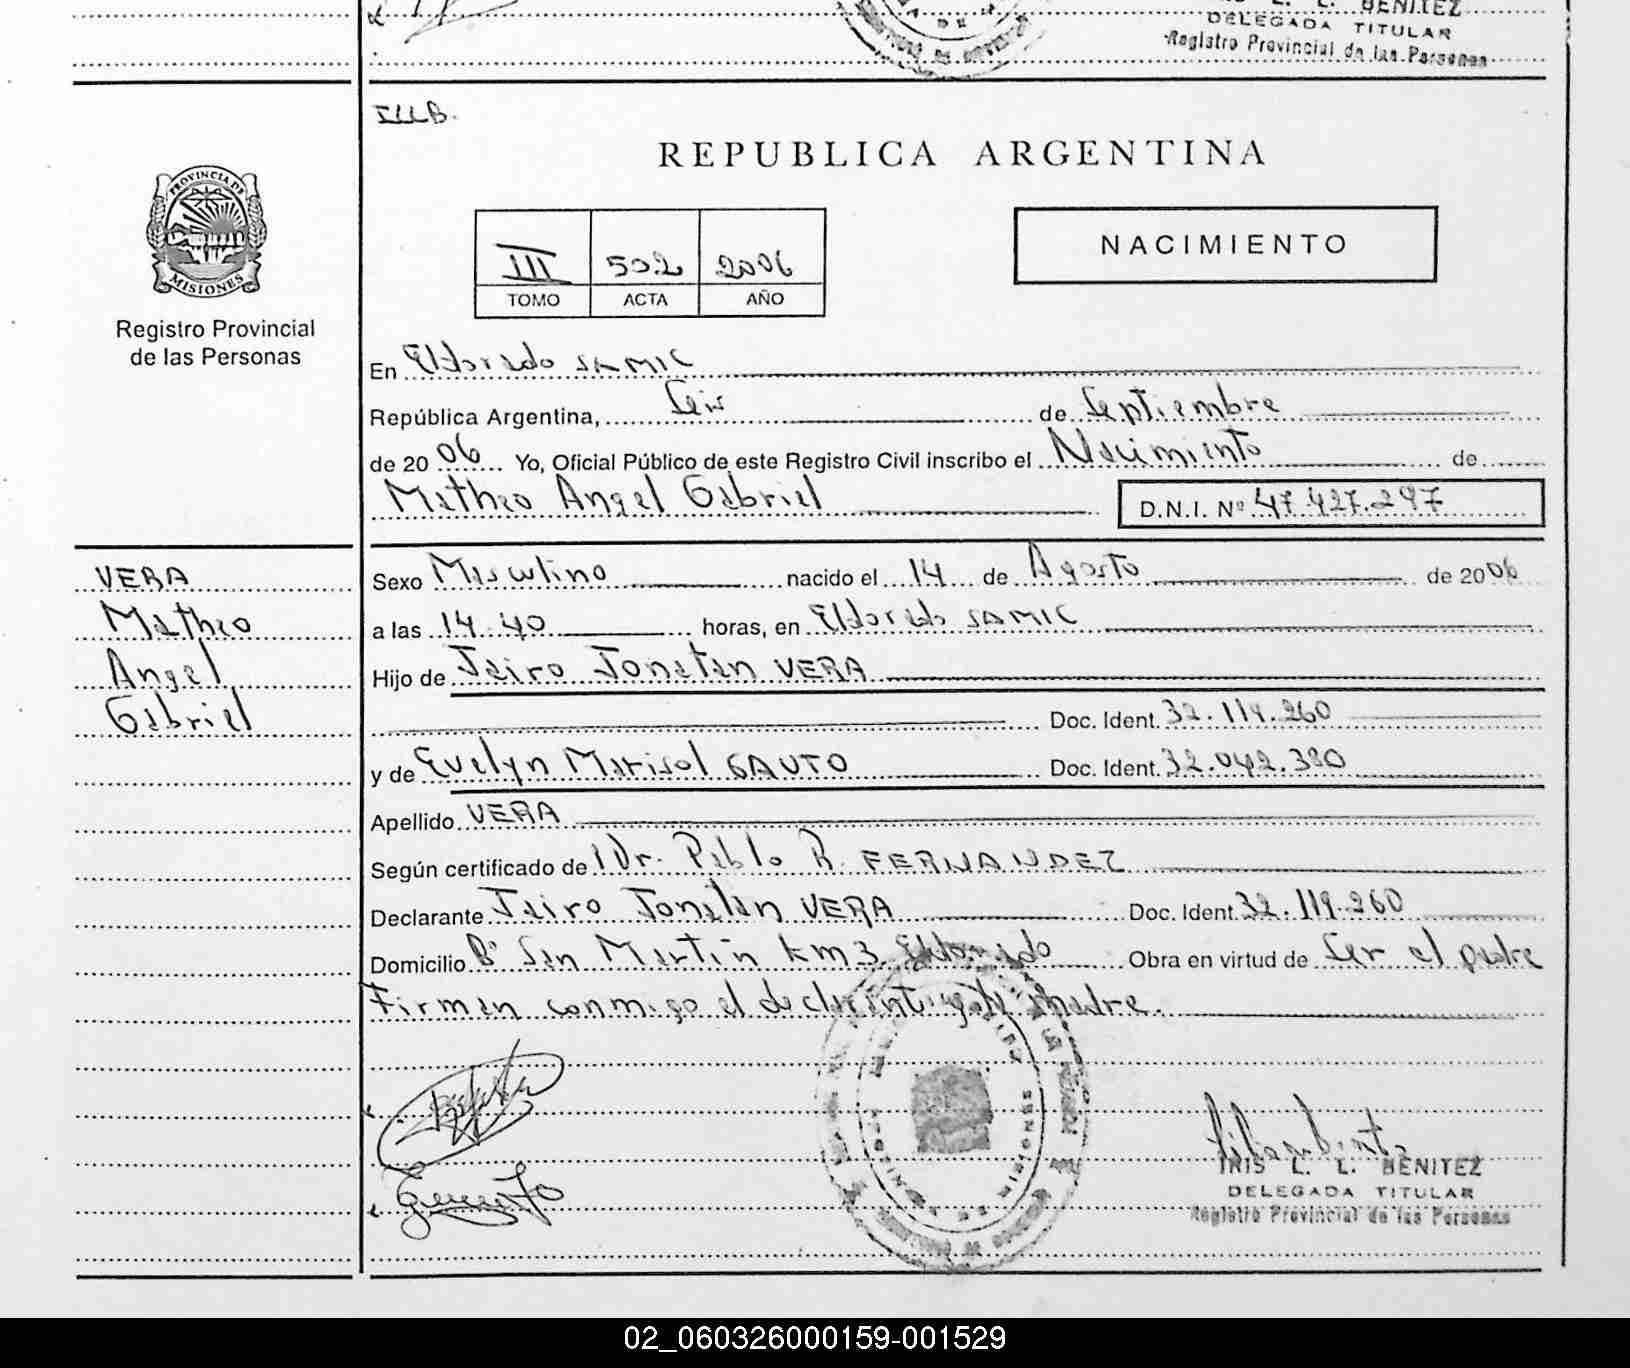 L. L. BENITEZ
DELEGADA TITULAR
Registro Provincial de las Personas
ILLB.
REPUBLICA ARGENTINA
PROVINCIA DE
MISIONES
Registro Provincial
de las Personas
III 502 2006
TOMO ACTA AÑO
NACIMIENTO
En Eldorado SAMIC
República Argentina, Seis de Septiembre
de 20 06 Yo, Oficial Público de este Registro Civil inscribo el Nacimiento de
Matheo Angel Gabriel D.N.I. Nº 47.427.297
VERA
Matheo
Angel
Gabriel
Sexo Masculino nacido el 14 de Agosto de 2006
a las 14:40 horas, en Eldorado SAMIC
Hijo de Jairo Jonatan VERA
Doc. Ident. 32.119.260
y de Evelyn Marisol GAUTO Doc. Ident. 32.042.380
Apellido VERA
Según certificado de l Dr. Pablo R. FERNANDEZ
Declarante Jairo Jonatan VERA Doc. Ident. 32.119.260
Domicilio Bº San Martin km 3 Eldorado Obra en virtud de Ser el padre
Firman conmigo el declarante y la Madre.
IRIS L. L. BENITEZ
DELEGADA TITULAR
Registro Provincial de las Personas
02_060326000159-001529